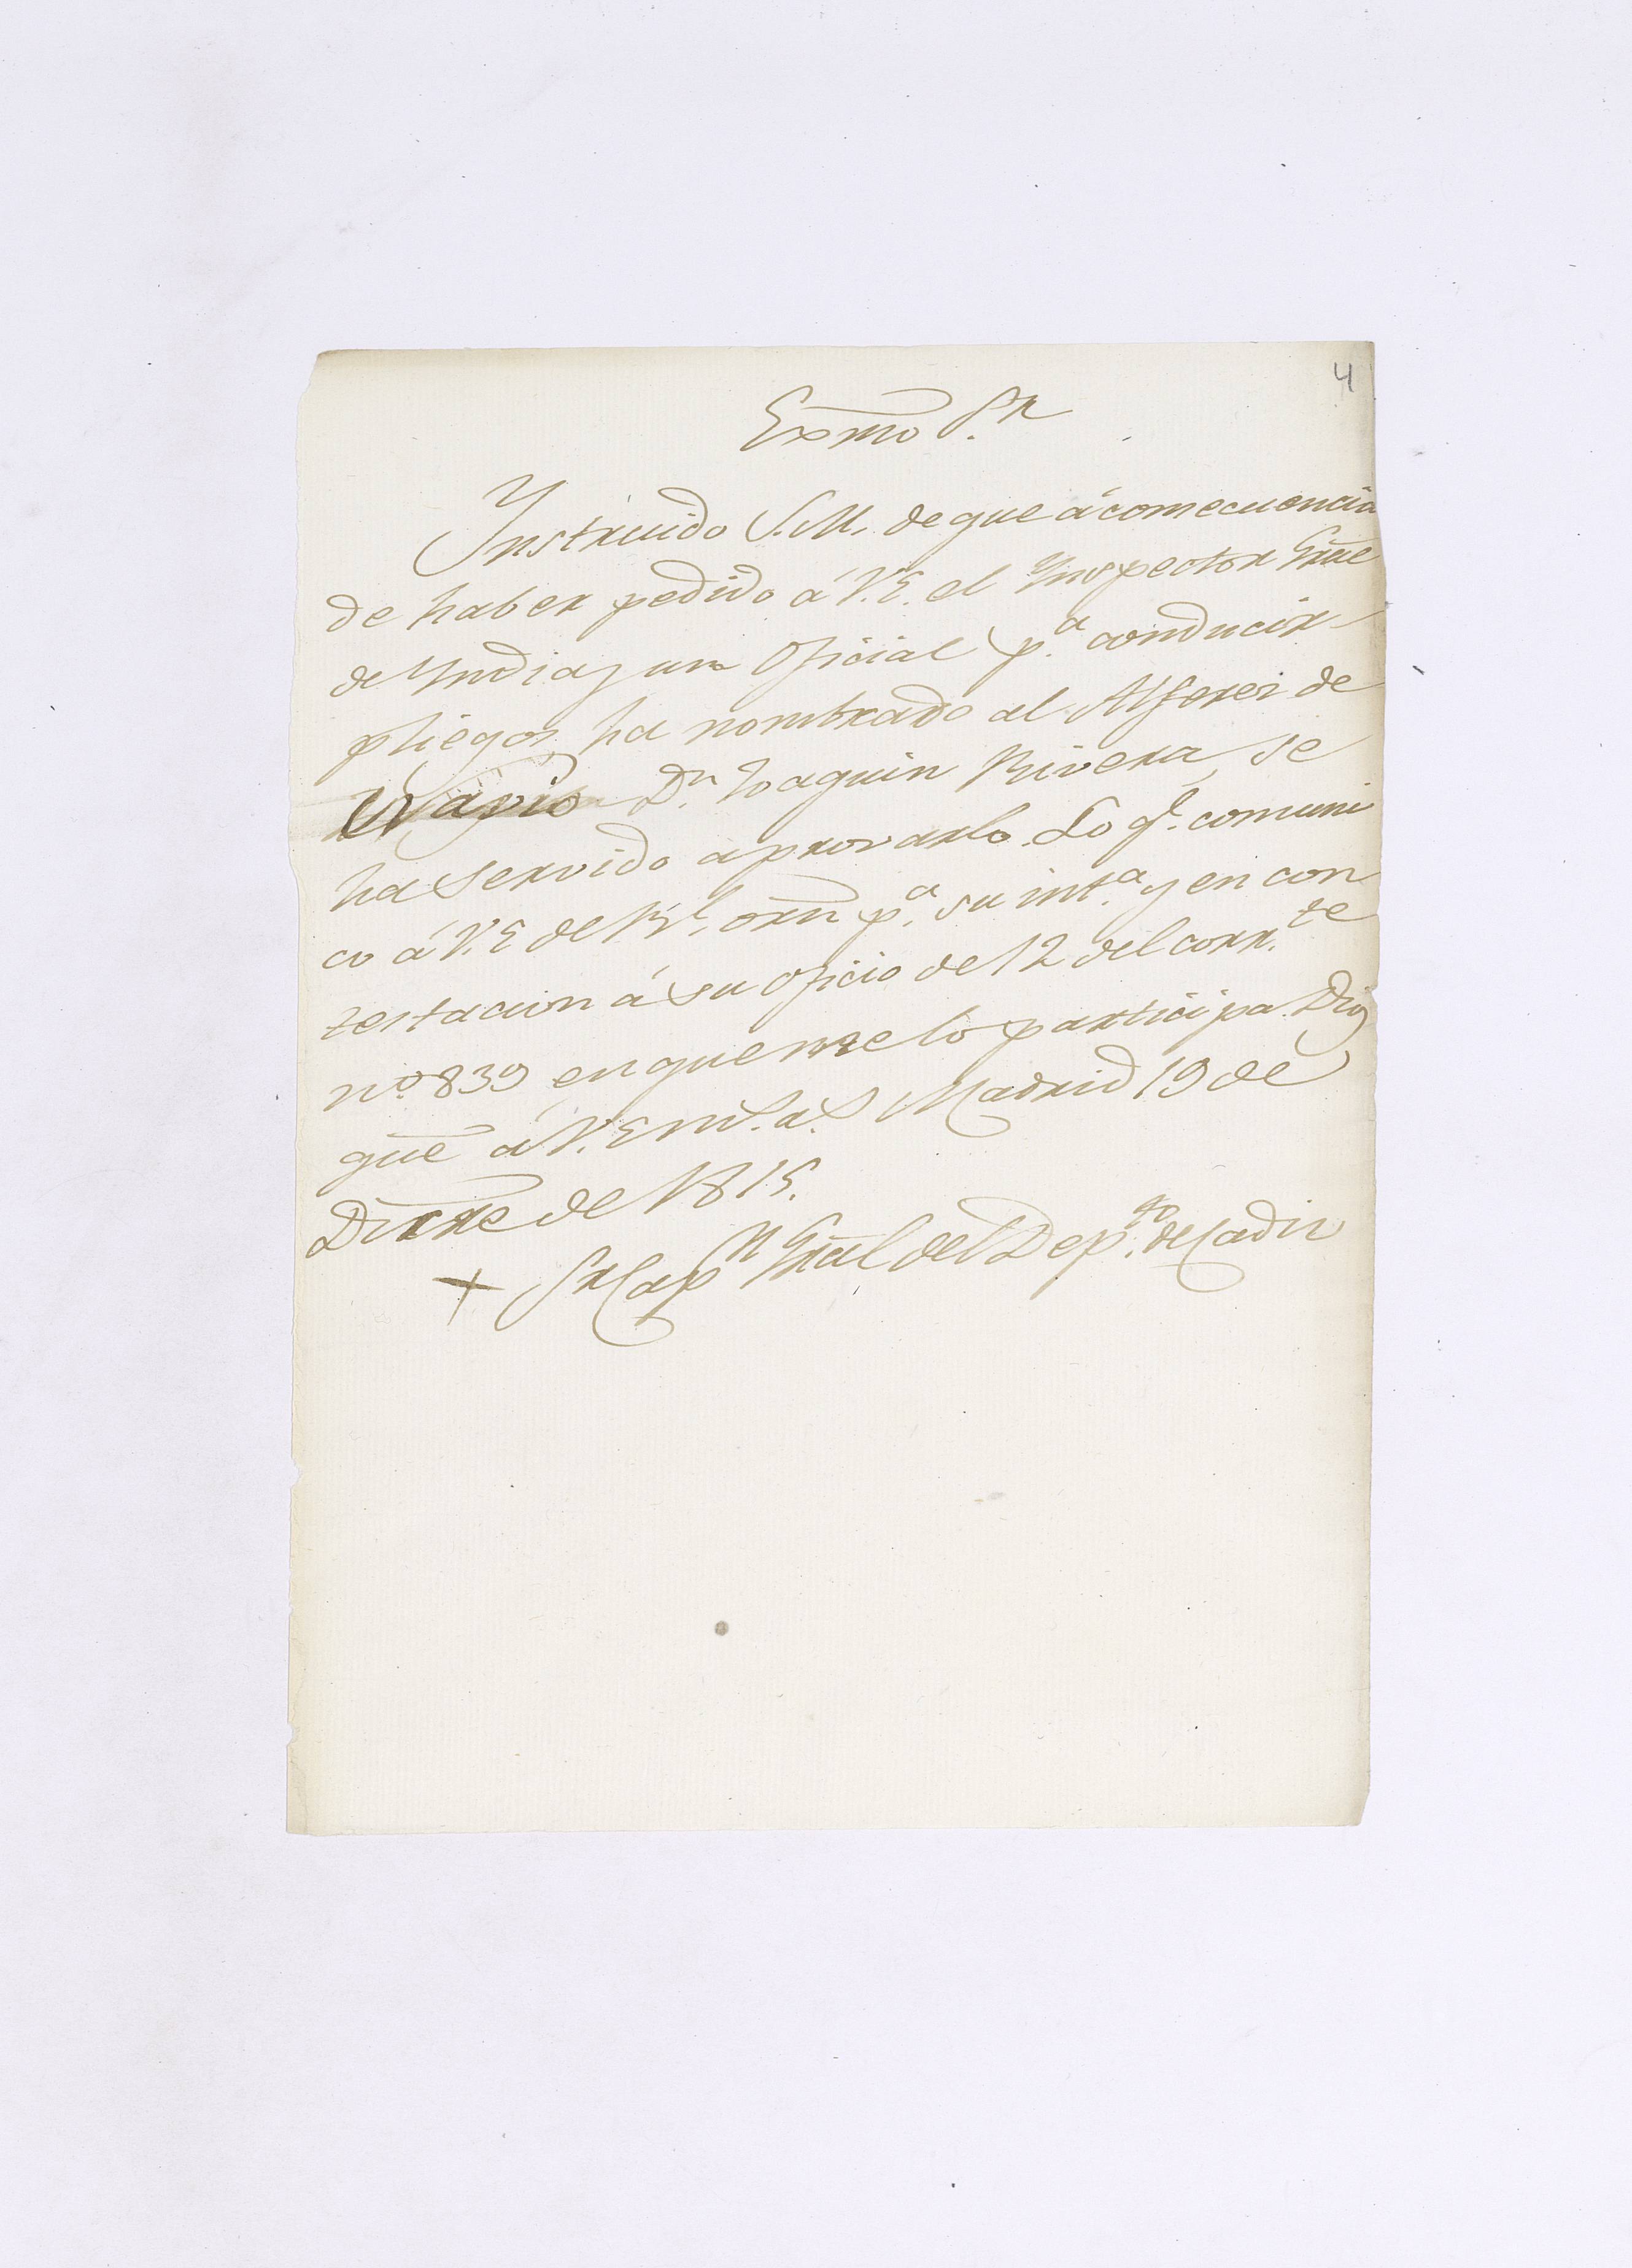 4
Exmo S.r
Ynstruido S.M. de que á consecuencia
de haber pedido á V.E. el Ynspector Gral
de Yndias un Oficial p.a conducir
pliegos ha nombrado al Alferez de
Navio D.n Joaquin Rivera, se
ha servido aprovarlo. Lo q.e comuni
co á V.E de R.l orn p.a su int.a y en con
testacion á su oficio de 12 del corr.te
nº 839 en que me lo participa. Dios
gue á V.E m.s a.s Madrid 19 de
Dicre de 1815.
+ Sr Cap.n Gral del Dep.to de Cadiz